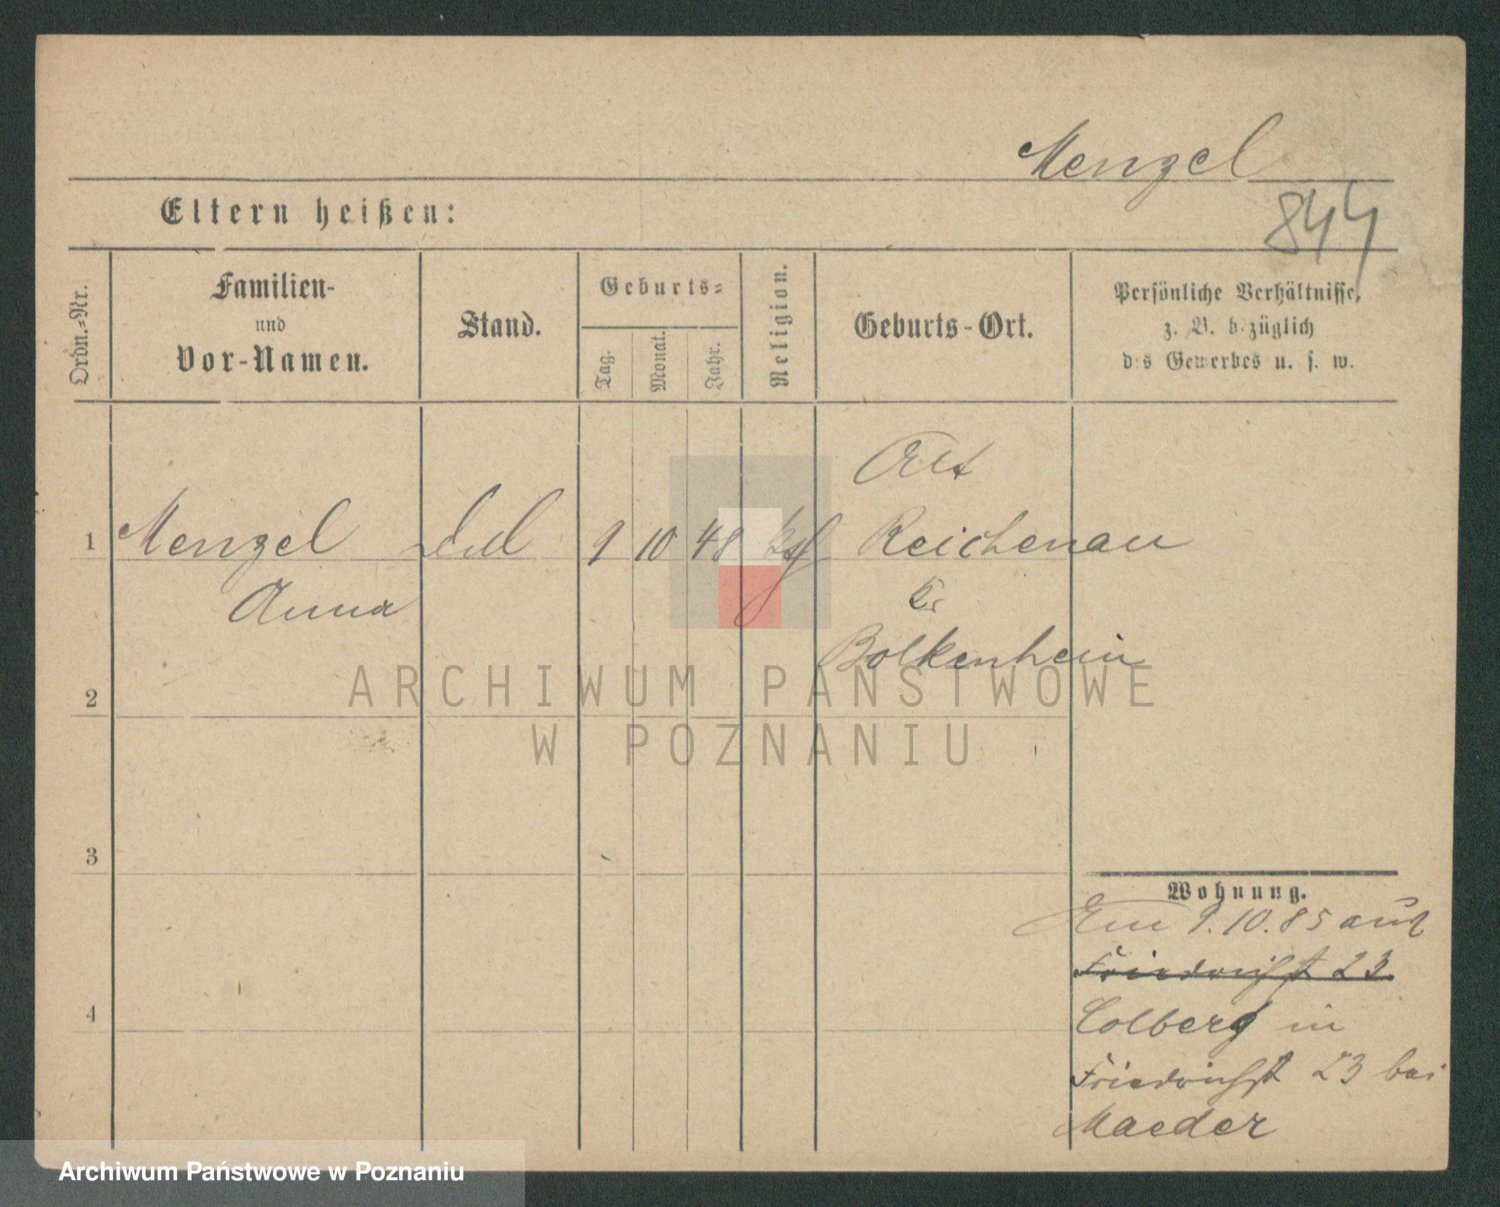 Mengel
844
Eltern heißen:
Ordn.-Nr.
Familien-
und
Vor-Namen.
Stand.
Geburts-
Tag.
Monat.
Jahr.
Religion.
Geburts-Ort.
Persönliche Verhältnisse,
z. B. bezüglich
des Gewerbes u. s. w.
Alt
1 Mengel led 9 10 48 Reichenau
Anna Kr
Bolkenhein
2
3
4
Wohnung.
9.10.85 aus
Friedrichst 23
Colberg in
Friedrichst 23 bei
Maeder
ARCHIWUM PAŃSTWOWE
W POZNANIU
Archiwum Państwowe w Poznaniu